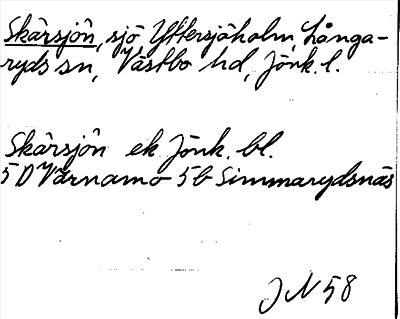 Skärsjön, sjö Yttersjöholm, Långa-
ryds sn, Västbo hd, Jönk. l.
Skärsjön ek Jönk. bl.
5 D Värnamo 5b Simmarydsnäs
J N 58